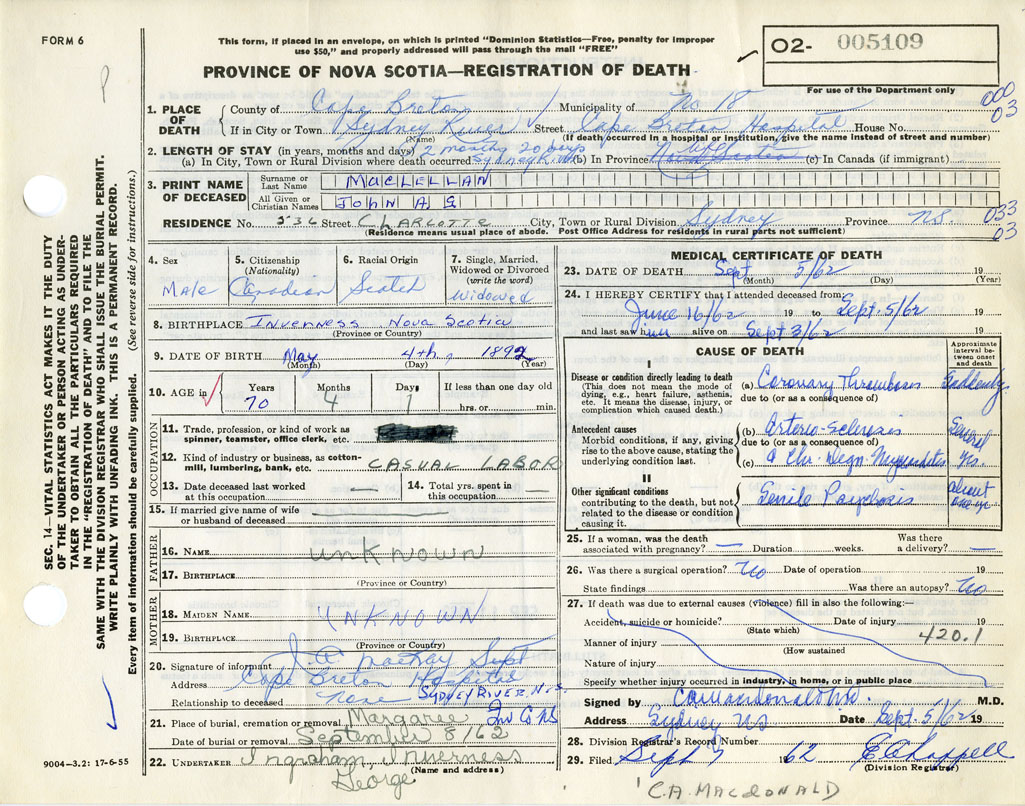 FORM 6
This form, if placed in an envelope, on which is printed "Dominion Statistics—Free, penalty for improper
use $50," and properly addressed will pass through the mail "FREE"
PROVINCE OF NOVA SCOTIA—REGISTRATION OF DEATH
O2- 005109
For use of the Department only
000
03
1. PLACE OF DEATH
County of Cape Breton Municipality of No 18
If in City or Town Sydney River Street Cape Breton Hospital House No.
(Name) (If death occurred in a hospital or institution, give the name instead of street and number)
2. LENGTH OF STAY (in years, months and days) 2 months 20 days
(a) In City, Town or Rural Division where death occurred Sydney River (b) In Province Nova Scotia (c) In Canada (if immigrant)
3. PRINT NAME OF DECEASED
Surname or Last Name MACLELLAN
All Given or Christian Names JOHN A G
RESIDENCE No. 536 Street CHARLOTTE City, Town or Rural Division Sydney Province NS.
033
03
(Residence means usual place of abode. Post Office Address for residents in rural parts not sufficient)
4. Sex Male
5. Citizenship (Nationality) Canadian
6. Racial Origin Scotch
7. Single, Married, Widowed or Divorced (write the word) Widowed
8. BIRTHPLACE Inverness Nova Scotia
(Province or Country)
9. DATE OF BIRTH May 4th, 1892
(Month) (Day) (Year)
10. AGE in Years 70 Months 4 Days 1 If less than one day old hrs. or min.
OCCUPATION
11. Trade, profession, or kind of work as spinner, teamster, office clerk, etc.
12. Kind of industry or business, as cotton-mill, lumbering, bank, etc. CASUAL LABOR
13. Date deceased last worked at this occupation —
14. Total yrs. spent in this occupation —
15. If married give name of wife or husband of deceased —
FATHER
16. NAME unknown
17. BIRTHPLACE
(Province or Country)
MOTHER
18. MAIDEN NAME UNKNOWN
19. BIRTHPLACE
(Province or Country)
20. Signature of informant J. A. MacKay Supt
Address Cape Breton Hospital
SYDNEY RIVER, N.S.
Relationship to deceased none
21. Place of burial, cremation or removal Margaree Inv Co NS
Date of burial or removal September 8/62
22. UNDERTAKER Ingraham Inverness
George
(Name and address)
9004—3.2: 17-6-55
MEDICAL CERTIFICATE OF DEATH
23. DATE OF DEATH Sept 5/62 19
(Month) (Day) (Year)
24. I HEREBY CERTIFY that I attended deceased from:
June 16/62 19 to Sept. 5/62
and last saw him alive on Sept 3/62 19
CAUSE OF DEATH
Approximate interval between onset and death
I
Disease or condition directly leading to death
(This does not mean the mode of dying, e.g., heart failure, asthenia, etc. It means the disease, injury, or complication which caused death.)
(a) Coronary Thrombosis Suddenly
due to (or as a consequence of)
Antecedent causes
Morbid conditions, if any, giving rise to the above cause, stating the underlying condition last.
(b) Arterio-Sclerosis Several
due to (or as a consequence of)
(c) & Chr. Degn. Myocarditis yrs.
II
Other significant conditions
contributing to the death, but not related to the disease or condition causing it.
Senile Psychosis about one yr
25. If a woman, was the death associated with pregnancy? — Duration weeks. Was there a delivery? —
26. Was there a surgical operation? No Date of operation 19
State findings Was there an autopsy? No
27. If death was due to external causes (violence) fill in also the following:—
Accident, suicide or homicide? Date of injury 19
(State which)
420.1
Manner of injury
(How sustained
Nature of injury
Specify whether injury occurred in industry, in home, or in public place
Signed by M.D.
Address Sydney NS Date Sept. 5/62 19
28. Division Registrar's Record Number
29. Filed Sept 7 1962
(Division Registrar)
C.A. MACDONALD
SEC. 14—VITAL STATISTICS ACT MAKES IT THE DUTY
OF THE UNDERTAKER OR PERSON ACTING AS UNDER-
TAKER TO OBTAIN ALL THE PARTICULARS REQUIRED
IN THE "REGISTRATION OF DEATH" AND TO FILE THE
SAME WITH THE DIVISION REGISTRAR WHO SHALL ISSUE THE BURIAL PERMIT.
WRITE PLAINLY WITH UNFADING INK. THIS IS A PERMANENT RECORD.
Every item of information should be carefully supplied. (See reverse side for instructions.)